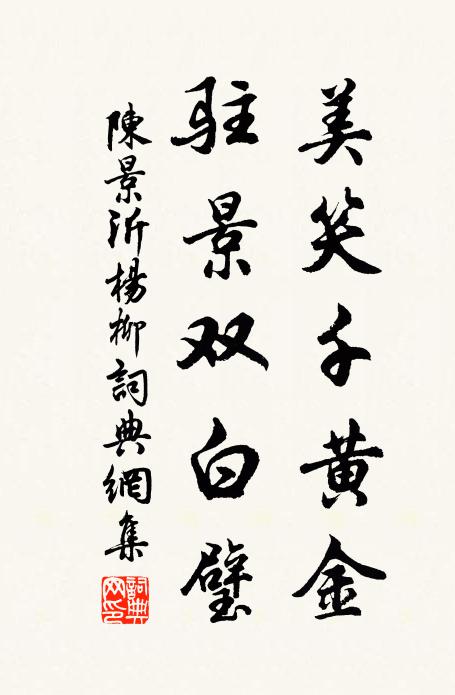 美笑千黄金
駐景双白璧
陳景沂楊柳詞典網集
詞典網印